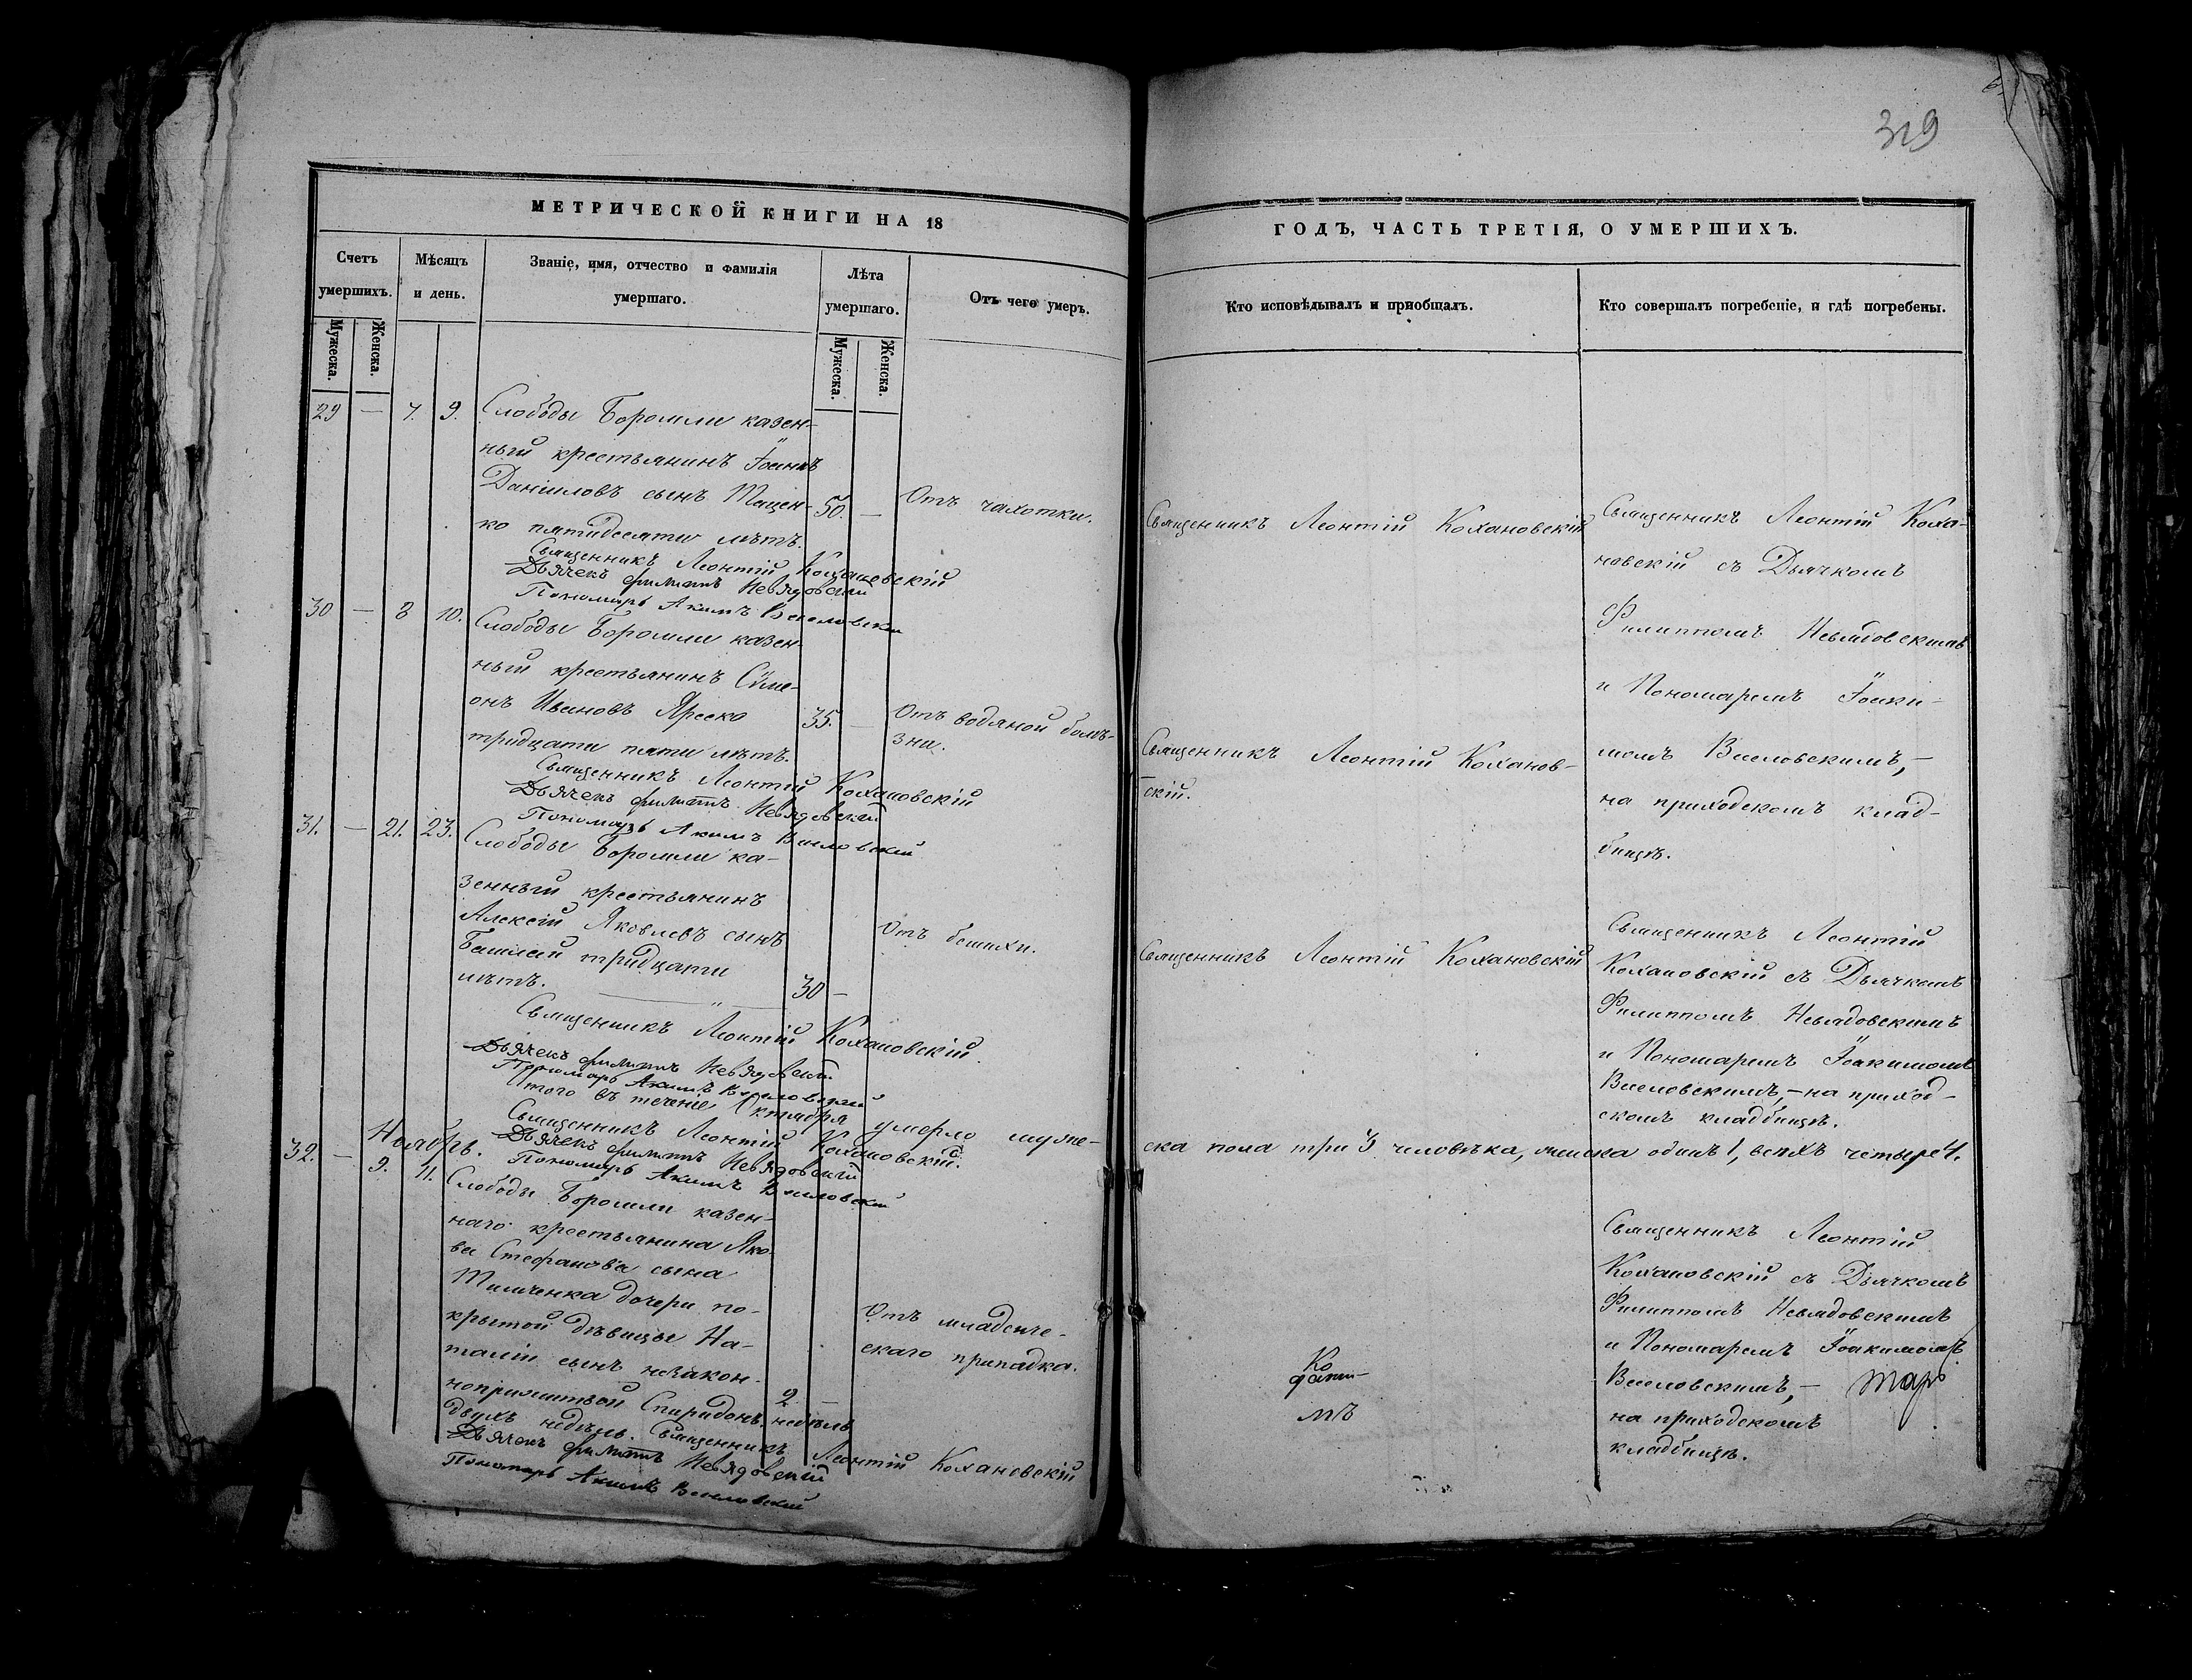 319
МЕТРИЧЕСКОЙ КНИГИ НА 18
ГОДЪ, ЧАСТЬ ТРЕТІЯ, О УМЕРШИХЪ.
Счетъ умершихъ.
Мужеска.
Женска.
Мѣсяцъ и день.
Званіе, имя, отчество и фамилія умершаго.
Лѣта умершаго.
Мужеска.
Женска.
Отъ чего умеръ.
Кто исповѣдывалъ и пріобщалъ.
Кто совершалъ погребеніе, и гдѣ погребены.
29 — 7. 9. Слободы Боромли казен-
ный крестьянинъ Іоаннъ
Даніиловъ сынъ Тищен-
ко пятидесяти лѣтъ.
50. — Отъ чахотки.
Священникъ Леонтій Кохановскій
Священникъ Леонтій Кохановскій
Дьячекъ Филиппъ Невядовскій
Пономарь Акимъ Веселовскій
30 — 8 10. Слободы Боромли казен-
ный крестьянинъ Сѵме-
онъ Ивановъ Яреско
тридцати пяти лѣтъ.
35. — Отъ водяной болѣ-
зни.
Священникъ Леонтій Коханов-
скій.
Священникъ Леонтій Кохановскій
Дьячекъ Филиппъ Невядовскій
Пономарь Акимъ Веселовскій
Священникъ Леонтій Коха-
новскій съ Дьячкомъ
Филиппомъ Невядовскимъ
и Пономаремъ Іоаки-
момъ Веселовскимъ, —
на приходскомъ клад-
бищѣ.
31. — 21. 23. Слободы Боромли ка-
зенный крестьянинъ
Алексій Яковлевъ сынъ
тридцати
лѣтъ.
30 —
Отъ бешихи.
Священникъ Леонтій Кохановскій
Священникъ Леонтій Кохановскій.
Дьячекъ Филиппъ Невядовскій
Пономарь Акимъ Веселовскій
Священникъ Леонтій
Кохановскій съ Дьячкомъ
Филиппомъ Невядовскимъ
и Пономаремъ Іоакимомъ
Веселовскимъ, — на приход-
скомъ кладбищѣ.
Итого въ теченіе Октября умерло муже-
ска пола три 3 человѣка, женска одинъ 1, всѣхъ четыре 4.
Священникъ Леонтій Кохановскій.
Дьячекъ Филиппъ Невядовскій
Пономарь Акимъ Веселовскій
Ноябрь.
32. — 9. 11. Слободы Боромли казен-
наго крестьянина Яко-
ва Стефанова сына
дочери по-
крытой дѣвицы На-
таліи сынъ незакон-
Спиридонъ
двухъ недѣль.
2. — недѣль
Отъ младенче-
скаго припадка.
Священникъ Леонтій Кохановскій
Дьячекъ Филиппъ Невядовскій
Пономарь Акимъ Веселовскій
Священникъ Леонтій
Кохановскій съ Дьячкомъ
Филиппомъ Невядовскимъ
и Пономаремъ Іоакимомъ
Веселовскимъ, —
на приходскомъ
кладбищѣ.